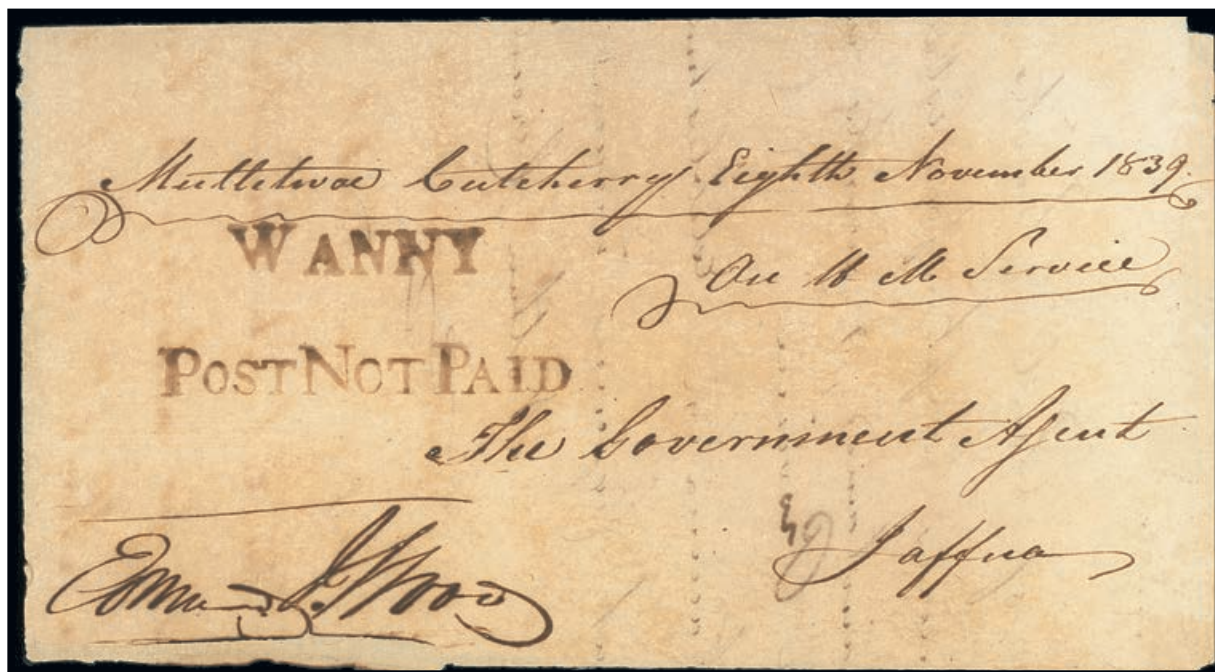 Mulletivoe Cutcherry Eighth November 1839.
WANNY
On H M Service
POST NOT PAID
The Government Agent
Jaffna
Edmund J. Wood